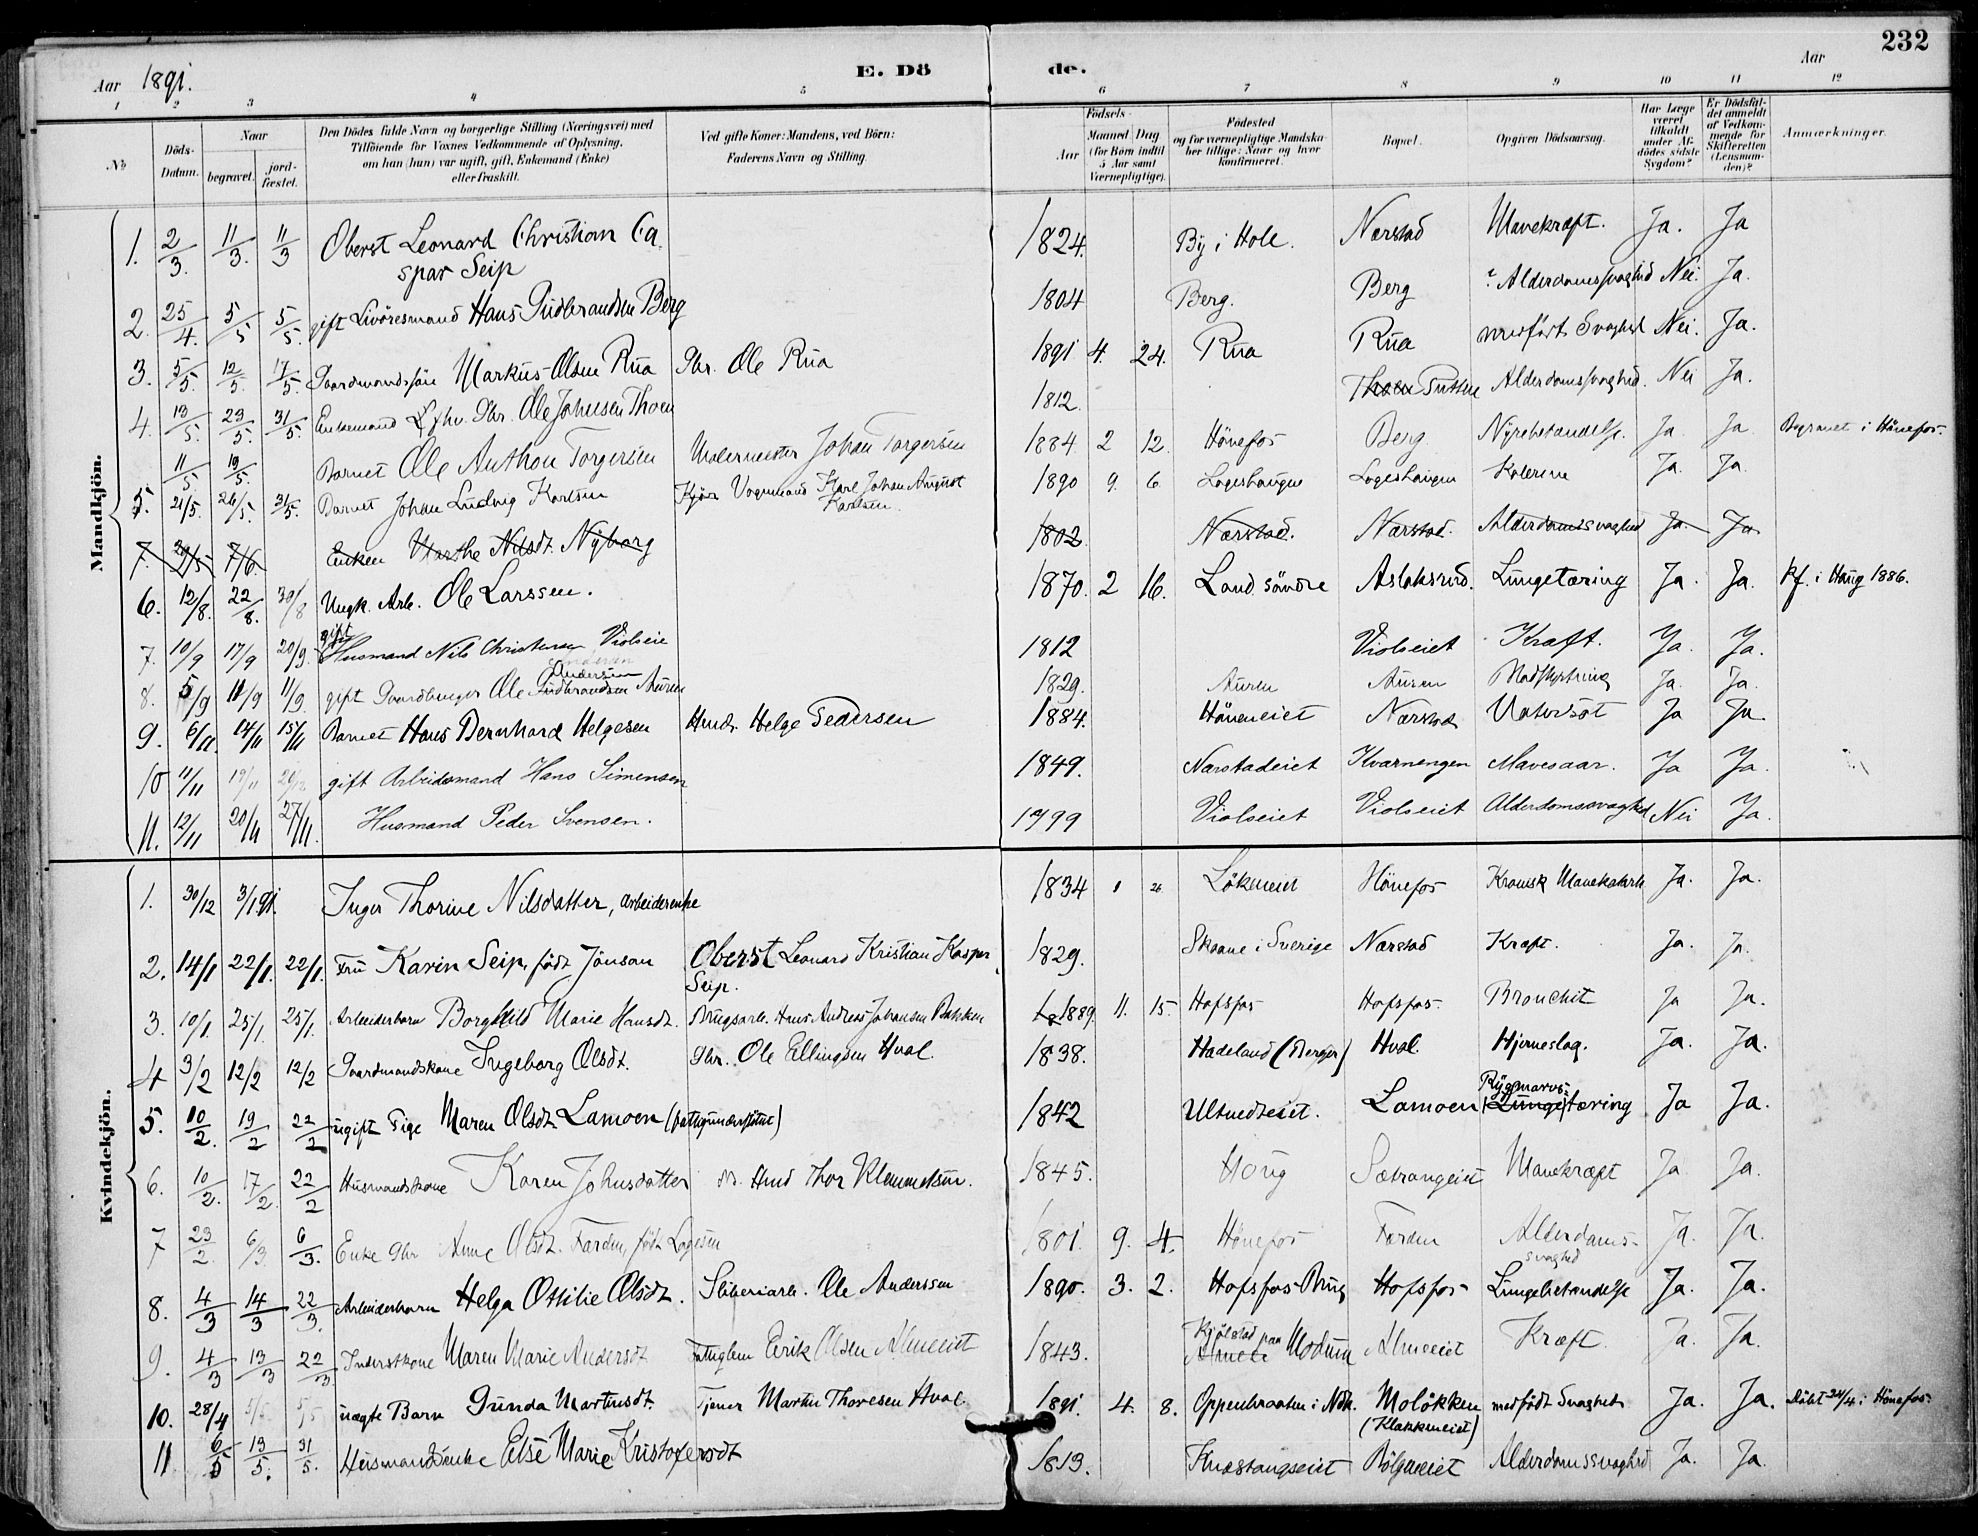 232
Aar 1891. E. Dö de. Aar
1 2 3 4 5 6 7 8 9 10 11 12
No
Döds-Datum.
Naar
begravet.
jord-fæstet.
Den Dödes fulde Navn og borgerlige Stilling (Næringsvei) med
Tilföiende for Voxnes Vedkommende af Oplysning,
om han (hun) var ugift, gift, Enkemand (Enke)
eller fraskilt.
Ved gifte Koner: Mandens, ved Börn:
Faderens Navn og Stilling.
Födsels-
Aar
Maaned Dag
(for Börn indtil
5 Aar samt
Værnepligtige).
Födested
og for værnepligtige Mandska-
ber tillige: Naar og hvor
konfirmeret.
Bopæl.
Opgiven Dödsaarsag.
Har Læge
været
tilkaldt
under Af-
dödes sidste
Sygdom?
Er Dödsfal-
det anmeldt
af Vedkom-
mende for
Skifteretten
(Lensman-
den)?
Anmærkninger.
Mandkjön.
1. 2/3. 11/3. 11/3 Oberst Leonard Christian Ca 1824. By i Hole. Nærstad Mavekræft. Ja. Ja
spar Seip
2. 25/4. 5/5 5/5. gift Livöresmand Hans Gudbrandsen Berg 1804 Berg. Berg Alderdomssvaghed Nei. Ja.
3. 5/5. 12/5. 17/5. Gaardmandssön Markus Olsen Rua Gbr. Ole Rua 1891 4. 24. Rua Rua medfödt Svaghed Nei. Ja.
4. 13/5. 23/5. 31/5. Enkemand Gbr. Ole Johnsen Thoen 1812. Thoen Alderdomssvaghed. Nei Ja.
11/5 19/5. Barnet Ole Anthon Torgersen Malermester Johan Torgersen 1884 2 12. Hönefos Berg Nyrebetændelse. Ja Ja Begravet i Hönefos.
5. 21/5. 26/5. 31/5. Barnet Johan Ludvig Karlsen Kjöre Vognmand Karl Johan August 1890 9. 6 Logeshaugen Logeshaugen Kolerine Ja. Ja.
Karlsen.
7. 29/5 7/6. Enken Marthe Nilsdt. Nyborg 1802. Nærstad. Nærstad. Alderdomssvaghed Ja Ja
6. 12/8. 22/8. 30/8 Ungk. Arb. Ole Larssen. 1870. 2 16. Land söndre Aslaksrud. Lungetæring Ja. Ja. Kf. i Haug 1886.
gift
7. 10/9 17/9 20/9. Husmand Nils Christensen Violseie 1812 Violseiet Kræft. Ja. Ja.
Andersen
8. 5/9 11/9 11/9. gift Gaardbruger Ole Gudbrandsen Auren 1829. Auren Auren Blodstyrtning Ja. Ja.
9. 6/11. 14/11 15/11 Barnet Hans Bernhard Helgesen Husm. Helge Pedersen 1884. Höneneiet Nærstad Vatersot Ja Ja.
10 11/11 19/11 gift Arbeidsmand Hans Simensen 1849. Nærstadeiet Kvarnengen Mavesaar. Ja Ja.
11. 12/11 20/11 27/11. Husmand Peder Svensen. 1799 Violseiet Violseiet Alderdomssvaghed Nei Ja.
Kvindekjön.
1. 30/12 3/1 91. Inger Thorine Nilsdatter, arbeiderenke 1834 1 26 Lökeneiet Hönefos Kronisk Mavekatarh Ja. Ja.
2. 14/1 22/1. 22/1. Fru Karin Seip, födt Jönson Oberst Leonard Kristian Kasper 1829. Skaane i Sverige Nærstad Kræft. Ja. Ja.
Seip.
3. 10/1. 25/1. 25/1. Arbeiderbarn Borghild Marie Hansdt. Brugsarb. Hans Andreas Johansen Bakken 1889. 11. 15. Hofsfos Hofsfos Bronchit Ja Ja.
4 3/2 12/2 12/2 Gaardmandskone Ingeborg Olsdt. Gbr. Ole Ellingsen Hval. 1838. Hadeland (Berger) Hval. Hjerneslag. Ja. Ja.
Rygmarvs-
5. 10/2. 19/2 22/2 ugift Pige Maren Olsdt Lamoen (fattigunderstöttet) 1842 Ultvedteiet. Lamoen Lungetæring Ja Ja.
6. 10/2. 17/2. 22/2 Husmandskone Karen Johnsdatter M. Husm Thor Klemmetsen. 1845. Houg Sætrangeiet Mavekræft Ja Ja.
7 23/2. 6/3. 6/3. Enke Gbr Anne Olsdt. Farden, födt Logesen 1801. 9. 4. Hönefos Farden Alderdoms- Ja. Ja.
svaghed
8. 4/3 14/3 22/3. Arbeiderbarn Helga Ottilie Olsdt. Sliberiarb. Ole Anderssen 1890. 3. 2. Hofsfos Brug Hofsfos Lungebetændelse Ja. Ja.
Kjölstad paa
9. 4/3 13/3 22/3. Inderstkone Maren Marie Andersdt Fattiglem Eerik Olsen Almeeiet 1843. Almeei Modum Almeeiet Kræft. Ja. Ja.
10. 28/4 5/5 5/5 uægte Barn Gunda Martinsdt. Tjener Martin Thoresen Hval. 1891. 4. 8. Oppenbraaten i Ndr. Molökken medfödt Svaghed Ja. Ja. Döbt 24/4 i Hönefos.
(Klækkeneiet)
11 6/5 13/5. 31/5. Husmandsenke Else Marie Kristofersdt 1813. Knestangseiet Bölgeneiet Alderdomssvaghed Ja. Ja.